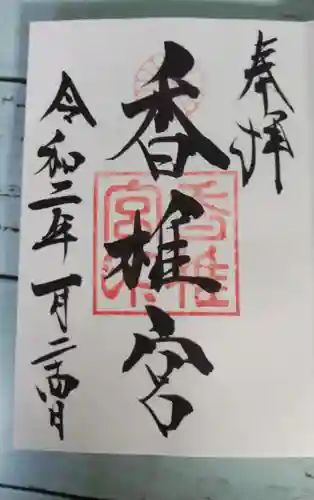 奉拝
香椎宮
令和二年一月二十四日
香椎宮印